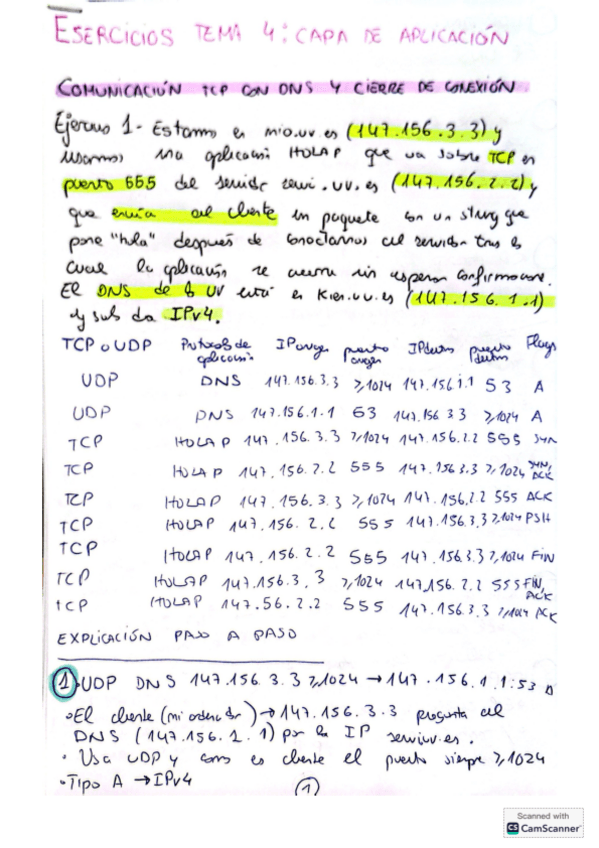 ESERCICIOS TEMA 4: CAPA DE APLICACIÓN
COMUNICACIÓN TCP CON DNS Y CIERRE DE CONEXIÓN
Ejercicio 1- Estamos en mio.uv.es (147.156.3.3) y
usamos una aplicación HOLAP que va sobre TCP en
puerto 555 del servidor servi.uv.es (147.156.2.2) y
que envía al cliente un paquete con un string que
pone "hola" después de conectarnos al servidor tras lo
cual la aplicación se cierra sin esperar confirmaciones.
El DNS de la UV está en Kien.uv.es (147.156.1.1)
y sub da IPv4.
TCP o UDP Protocolo de aplicación IP origen puerto origen IP destino puerto destino Flags
UDP DNS 147.156.3.3 ≥1024 147.156.1.1 53 A
UDP DNS 147.156.1.1 53 147.156 3 3 ≥1024 A
TCP HOLAP 147.156.3.3 ≥1024 147.156.2.2 555 SYN
TCP HOLAP 147.156.2.2 555 147.156.3.3 ≥1024 SYN, ACK
TCP HOLAP 147.156.3.3 ≥1024 147.156.2.2 555 ACK
TCP HOLAP 147.156.2.2 555 147.156.3.3 ≥1024 PSH
TCP HOLAP 147.156.2.2 555 147.156.3.3 ≥1024 FIN
TCP HOLAP 147.156.3.3 ≥1024 147.156.2.2 555 FIN, ACK
TCP HOLAP 147.56.2.2 555 147.156.3.3 ≥1024 ACK
EXPLICACIÓN PASO A PASO
1 UDP DNS 147.156.3.3 ≥1024 → 147.156.1.1:53 A
• El cliente (mi ordenador) → 147.156.3.3 pregunta al
DNS (147.156.1.1) por la IP serviuv.es.
• Usa UDP y como es cliente el puerto siempre ≥1024
• Tipo A → IPv4
1
Scanned with
CS CamScanner